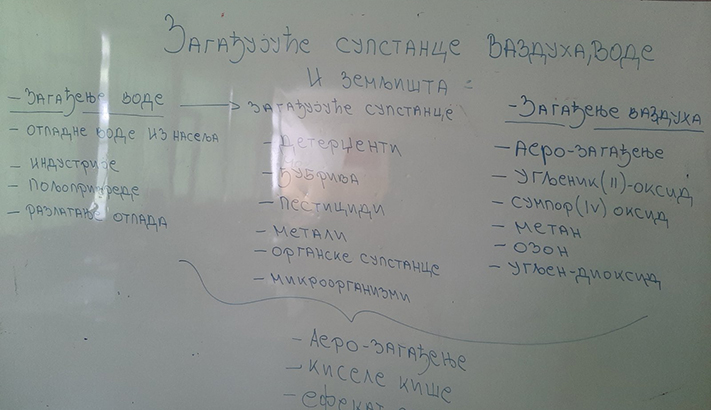 Загађујуће супстанце ваздуха, воде
и земљишта -
- Загађење воде → загађујуће супстанце
- отпадне воде из насеља
- индустрије
- пољопривреде
- разлагање отпада
- детерџенти
- ђубрива
- пестициди
- метали
- органске супстанце
- микроорганизми
- Загађење ваздуха
- Аеро-загађење
- угљеник(II)-оксид
- сумпор(IV) оксид
- метан
- озон
- угљен-диоксид
- Аеро-загађење
- киселе кише
- ефекат